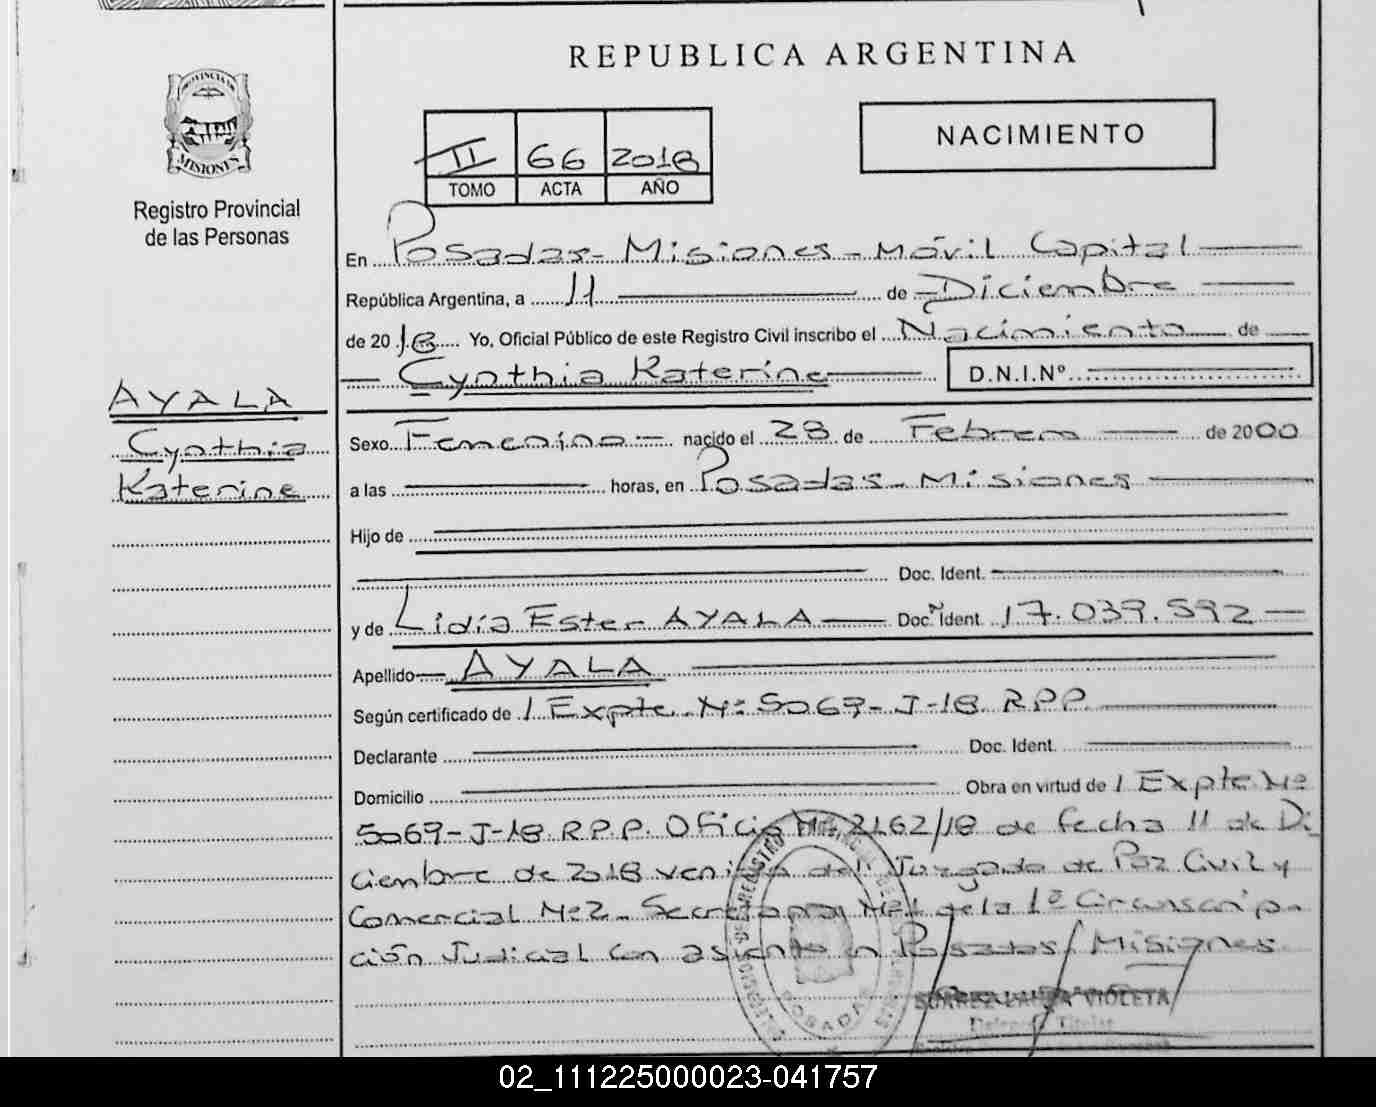 REPUBLICA ARGENTINA
PROVINCIA DE
MISIONES
Registro Provincial
de las Personas
II 66 2018
TOMO ACTA AÑO
NACIMIENTO
En Posadas - Misiones - Móvil Capital
República Argentina, a 11 de Diciembre
de 2018 Yo, Oficial Público de este Registro Civil inscribo el Nacimiento de
Cynthia Katerine D.N.I.Nº
AYALA
Cynthia
Katerine
Sexo Femenino - nacido el 28 de Febrero de 2000
a las horas, en Posadas - Misiones
Hijo de
Doc. Ident.
y de Lidia Ester AYALA Doc. Ident. 17.039.592
Apellido AYALA
Según certificado de / Expte. Nº 5069-J-18 R.P.P.
Declarante Doc. Ident.
Domicilio Obra en virtud de / Expte Nº
5069-J-18 R.P.P. Oficio Nº 2162/18 de fecha 11 de Di
ciembre de 2018 venido del Juzgado de Paz Civil y
Comercial Nº2 - Secretaria Nº1 de la 1º Circunscrip-
ción Judicial con asiento en Posadas/Misiones
POSADAS
SUAREZ LAURA VIOLETA
Titular
02_111225000023-041757